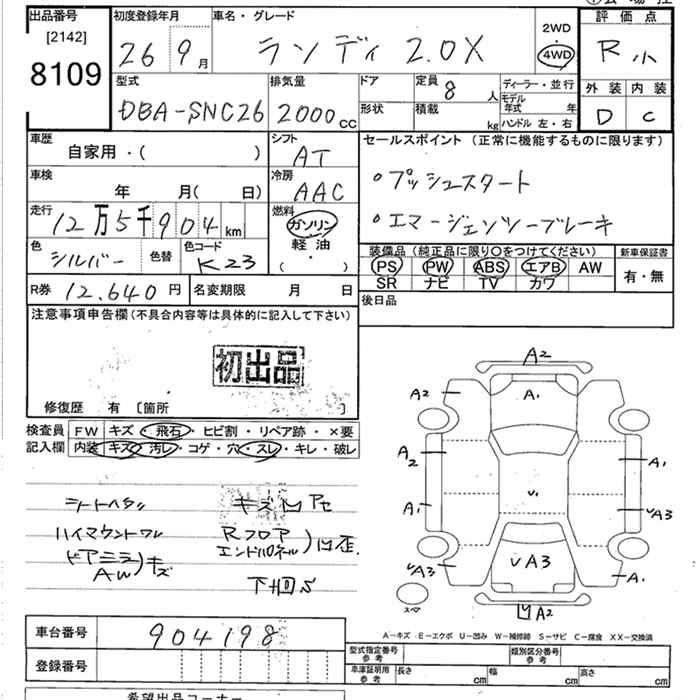 出品番号 初度登録年月 車名・グレード 評価点
[2142]
8109
26 9月 ランディ 2.0X 2WD 4WD R 小
外装 内装
D C
型式 排気量 ドア 定員 8人 ディーラー・並行
DBA-SNC26 2000cc 形状 積載 kg モデル年式 年
ハンドル 左・右
車歴 シフト セールスポイント(正常に機能するものに限ります)
自家用・( ) AT
車検 冷房 ・プッシュスタート
年 月( 日) AAC
走行 燃料 ・エマージェンシーブレーキ
12万5千904km ガソリン
軽油
( )
色 シルバー 色替 色コード K23
装備品(純正品に限り○をつけてください) 新車保証書
PS PW ABS エアB AW 有・無
SR ナビ TV カワ
R券 12.640円 名変期限 月 日 後日品
注意事項申告欄(不具合内容等は具体的に記入して下さい)
初出品
修復歴 有 〔箇所 〕
検査員 FW キズ・飛石・ヒビ割・リペア跡・×要
記入欄 内装 キズ・汚レ・コゲ・穴・スレ・キレ・破レ
シートヘタリ
ハイマウントワレ
ドアミラ
AW キズ
Rフロア
エンドパネル 凹歪.
下回S
A2
A2 A1
A2 A1
A1 v1 vA3
vA3 vA3 A1
スペア 凹A2
A-キズ E-エクボ U-凹み W-補修跡 S-サビ C-腐食 XX-交換済
車台番号 904198
登録番号
型式指定番号 参考 類別区分番号 参考
車庫証明用 参考 長さ cm 幅 cm 高さ cm
希望出品コーナー